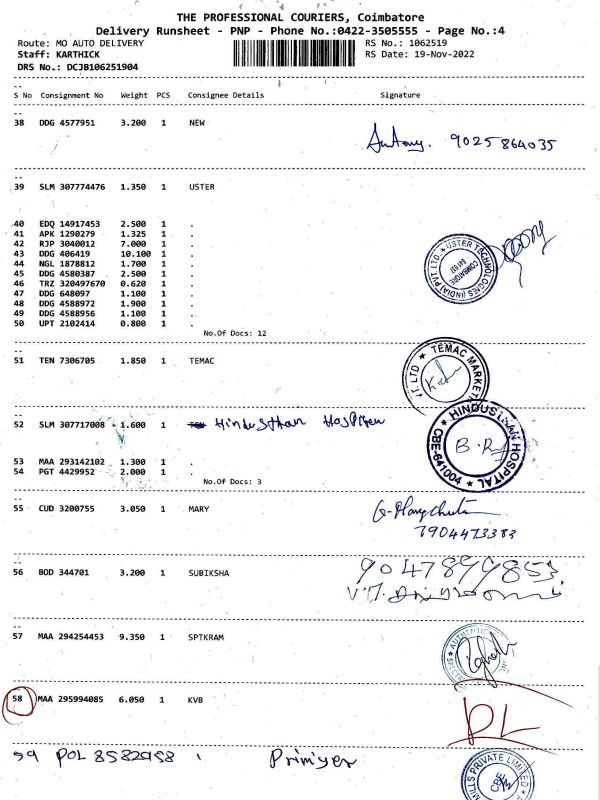 THE PROFESSIONAL COURIERS, Coimbatore
Delivery Runsheet - PNP - Phone No.:0422-3505555 - Page No.:4
Route: MO AUTO DELIVERY RS No.: 1062519
Staff: KARTHICK RS Date: 19-Nov-2022
DRS No.: DCJB106251904
S No Consignment No Weight PCS Consignee Details Signature
38 DDG 4577951 3.200 1 NEW
Antony. 9025864035
39 SLM 307774476 1.350 1 USTER
40 EDQ 14917453 2.500 1 .
41 APK 1290279 1.325 1 .
42 RJP 3040012 7.000 1 .
43 DDG 406419 10.100 1 .
44 NGL 1878812 1.700 1 .
45 DDG 4580387 2.500 1 .
46 TRZ 320497670 0.620 1 .
47 DDG 648097 1.100 1 .
48 DDG 4588972 1.900 1 .
49 DDG 4588956 1.100 1 .
50 UPT 2102414 0.800 1 .
USTER TECHNOLOGIES (INDIA) PVT. LTD.
COIMBATORE
No.Of Docs: 12
51 TEN 7306705 1.850 1 TEMAC
TEMAC MARKET
T. LTD
52 SLM 307717008 1.600 Hindusthan Hospital
HINDUSTHAN HOSPITAL
CBE-641004
53 MAA 293142102 1.300 1 .
54 PGT 4429952 2.000 1 .
No.Of Docs: 3
55 CUD 3200755 3.050 1 MARY
7904473383
56 BOD 344701 3.200 1 SUBIKSHA
9047899853
57 MAA 294254453 9.350 1 SPTKRAM
58 MAA 295994085 6.050 1 KVB
DL
59 POL 8582958 1 Primiyer
MILLS PRIVATE LIMITED
CBE